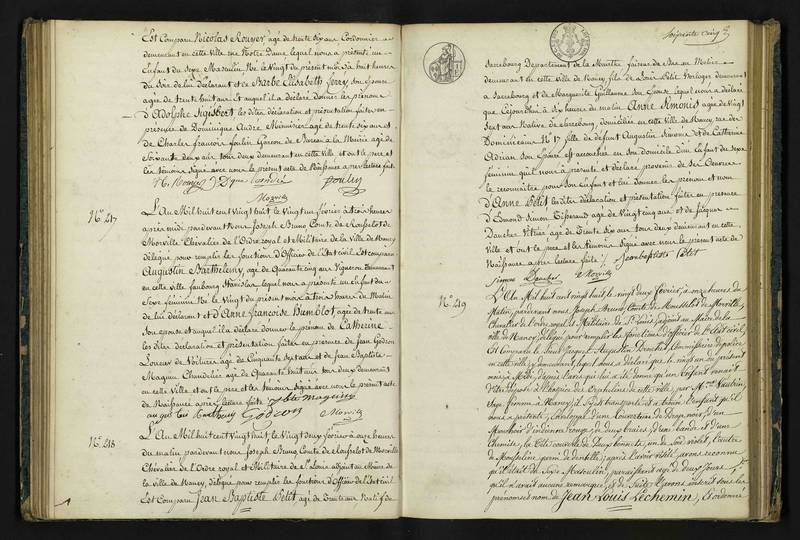 Est Comparu Nicolas Rouyer âgé de trente six ans Cordonnier
demeurant en cette ville rue Notre Dame lequel nous a présenté un
Enfant du sexe Masculin Né le Vingt du présent mois à huit heures
du Soir de lui déclarant et de Barbe Elisabeth Ferry son Epouse
agée de trente huit ans Et auquel il a déclaré donner les prénoms
d'Adolphe Sigisbert les dites déclaration et présentation faites en
présence de Dominique André Menuisier âgé de trente six ans et
de Charles François Poulin Garçon de Bureau à la Mairie âgé de
Soixante deux ans tous deux demeurant en cette ville et ont le père et
les témoins Signé avec nous le présent acte de Naissance après lecture faite
Poulin
Morville
N°. 217
L'An Mil huit cent Vingt huit le Vingt un février à trois heures
après midi pardevant nous Joseph Bruno Comte de
Morville Chevalier de l'Ordre royal et Militaire de la Ville de Nancy
délégué pour remplir les fonctions d'Officier de l'Etat Civil Est comparu
Augustin Barthelemy, âgé de Quarante cinq ans Vigneron demeurant
en cette ville faubourg Stanislas lequel nous a présenté un Enfant du
Sexe féminin Né le Vingt du présent mois à trois heures du Matin
de lui déclarant et d'Anne Françoise Humblot âgée de trente
son épouse et auquel il a déclaré donner le prénom de Catherine
les dites déclaration et présentation faites en présence de Jean Godson
Loueur de Voitures âgé de Cinquante sept ans et de Jean Baptiste
Maguin Chandelier âgé de Quarante huit ans tous deux demeurant
en cette Ville et ont le père et les témoins Signé avec nous le présent acte
de Naissance après lecture faite
Morville
N°. 218
L'An Mil huit cent Vingt huit, le Vingt deux février à onze heures
du matin pardevant nous Joseph Bruno Comte de Morville
Chevalier de l'Ordre royal et Militaire de St Louis adjoint au Maire de
la ville de Nancy, délégué pour remplir les fonctions d'Officier de l'Etat Civil
Est Comparu Jean Baptiste Petit, âgé de Trente ans Natif de
Soixante cinq
Sarrebourg Département de la Meurthe
demeurant en cette ville de Nancy fils de Louis Petit Horloger demeurant
à Sarrebourg et de Marguerite Guillaume son Epouse lequel nous a déclaré
que Cejourd'hui à Six heures du matin Anne Simonis agée de Vingt
Sept ans Native de Sarrebourg, domiciliée en cette Ville de Nancy rue des
Dominicains N° 17 fille de défunt Augustin Simonis et de Catherine
Adrian Son Epouse est accouchée en son domicile d'un Enfant du sexe
féminin qu'il nous a présenté et déclaré provenir de Ses Oeuvres
le reconnaître pour son Enfant et lui donner les prénom et nom
d'Anne Petit les dites déclaration et présentation faites en présence
d'Edmond Simon âgé de Vingt cinq ans et de Jacques
Daucher Vitrier âgé de Trente Six ans tous deux demeurant en cette
Ville et ont le père et les témoins Signé avec nous le présent acte de
Naissance après lecture faite Jean baptiste Petit
Daucher Morville
N°. 219
L'An Mil huit cent vingt huit, le vingt deux février, à onze heures du
Matin, pardevant nous Joseph Bruno, Comte de Morville,
Chevalier de l'ordre royal et Militaire de St Louis, adjoint au Maire de la
ville de Nancy, délégué pour remplir les fonctions d'officier de l'état civil,
Est Comparu le Sieur Commissaire de police
en cette ville, y demeurant, lequel nous a déclaré que le vingt un du présent
mois à Midi, d'après l'avis qui lui a été donné qu'un Enfant venait
d'être déposé à l'hospice des Orphelins de cette ville, par Mme
Sage femme à Nancy, il s'est transporté et a trouvé l'enfant qu'il
nous a présenté, Enveloppé d'une Couverture de Drap noir, d'un
Mouchoir d'indienne rouge, de deux braies, d'une bande et d'une
Chemise, la Tête couverte de deux bonnets, un de soie violet, l'autre
de Mousseline, garni de dentelle; après l'avoir visité, avons reconnu
qu'il était du Sexe Masculin, paraissant âgé de deux Jours,
qu'il n'avait aucune remarque, et de Suite l'avons inscrit sous les
prénoms et nom de Jean Louis Lechemin, Et ordonné